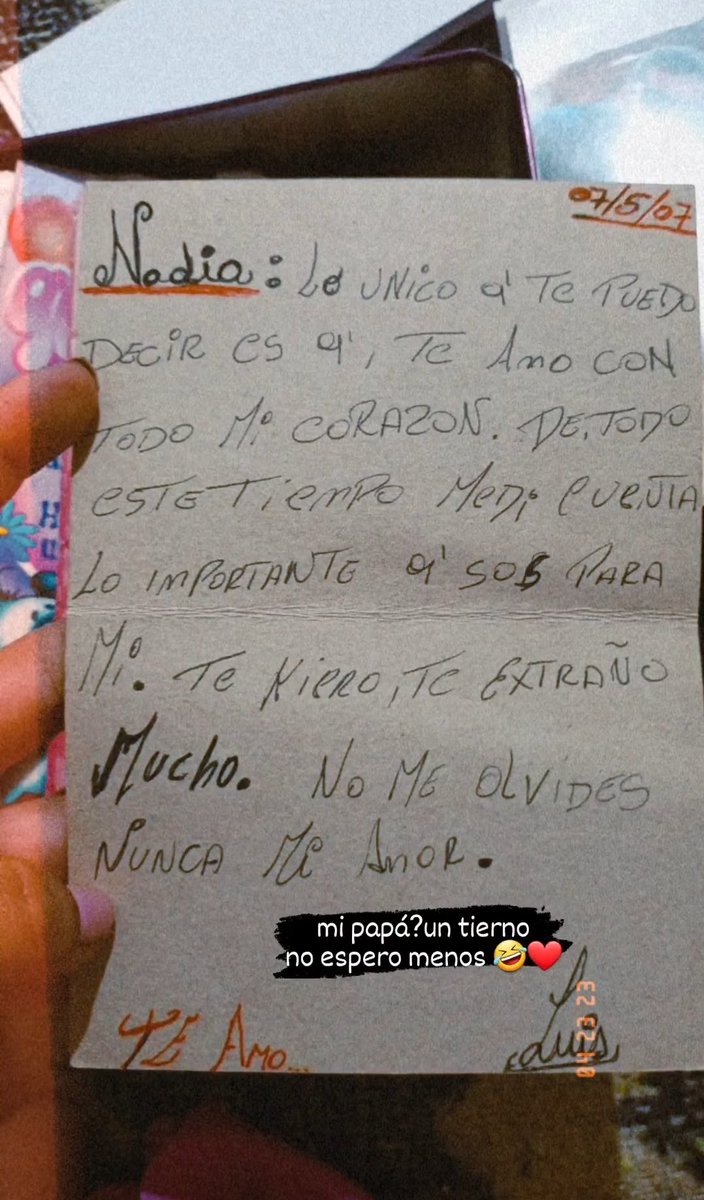 07/5/07
Nadia: Lo UNICO q' Te PUEDO
DECIR es q', Te Amo CON
TODO Mi CORAZON. DE, TODO
esTe Tiempo MeDi CueNTA
Lo IMPORTANTE q' SOS PARA
Mi. Te Kiero, Te EXTRAÑO
Mucho. No Me OLVIDES
NUNCA Mi Amor.
mi papá?un tierno
no espero menos 🤣❤️
TE Amo...
Luis
04 23 23